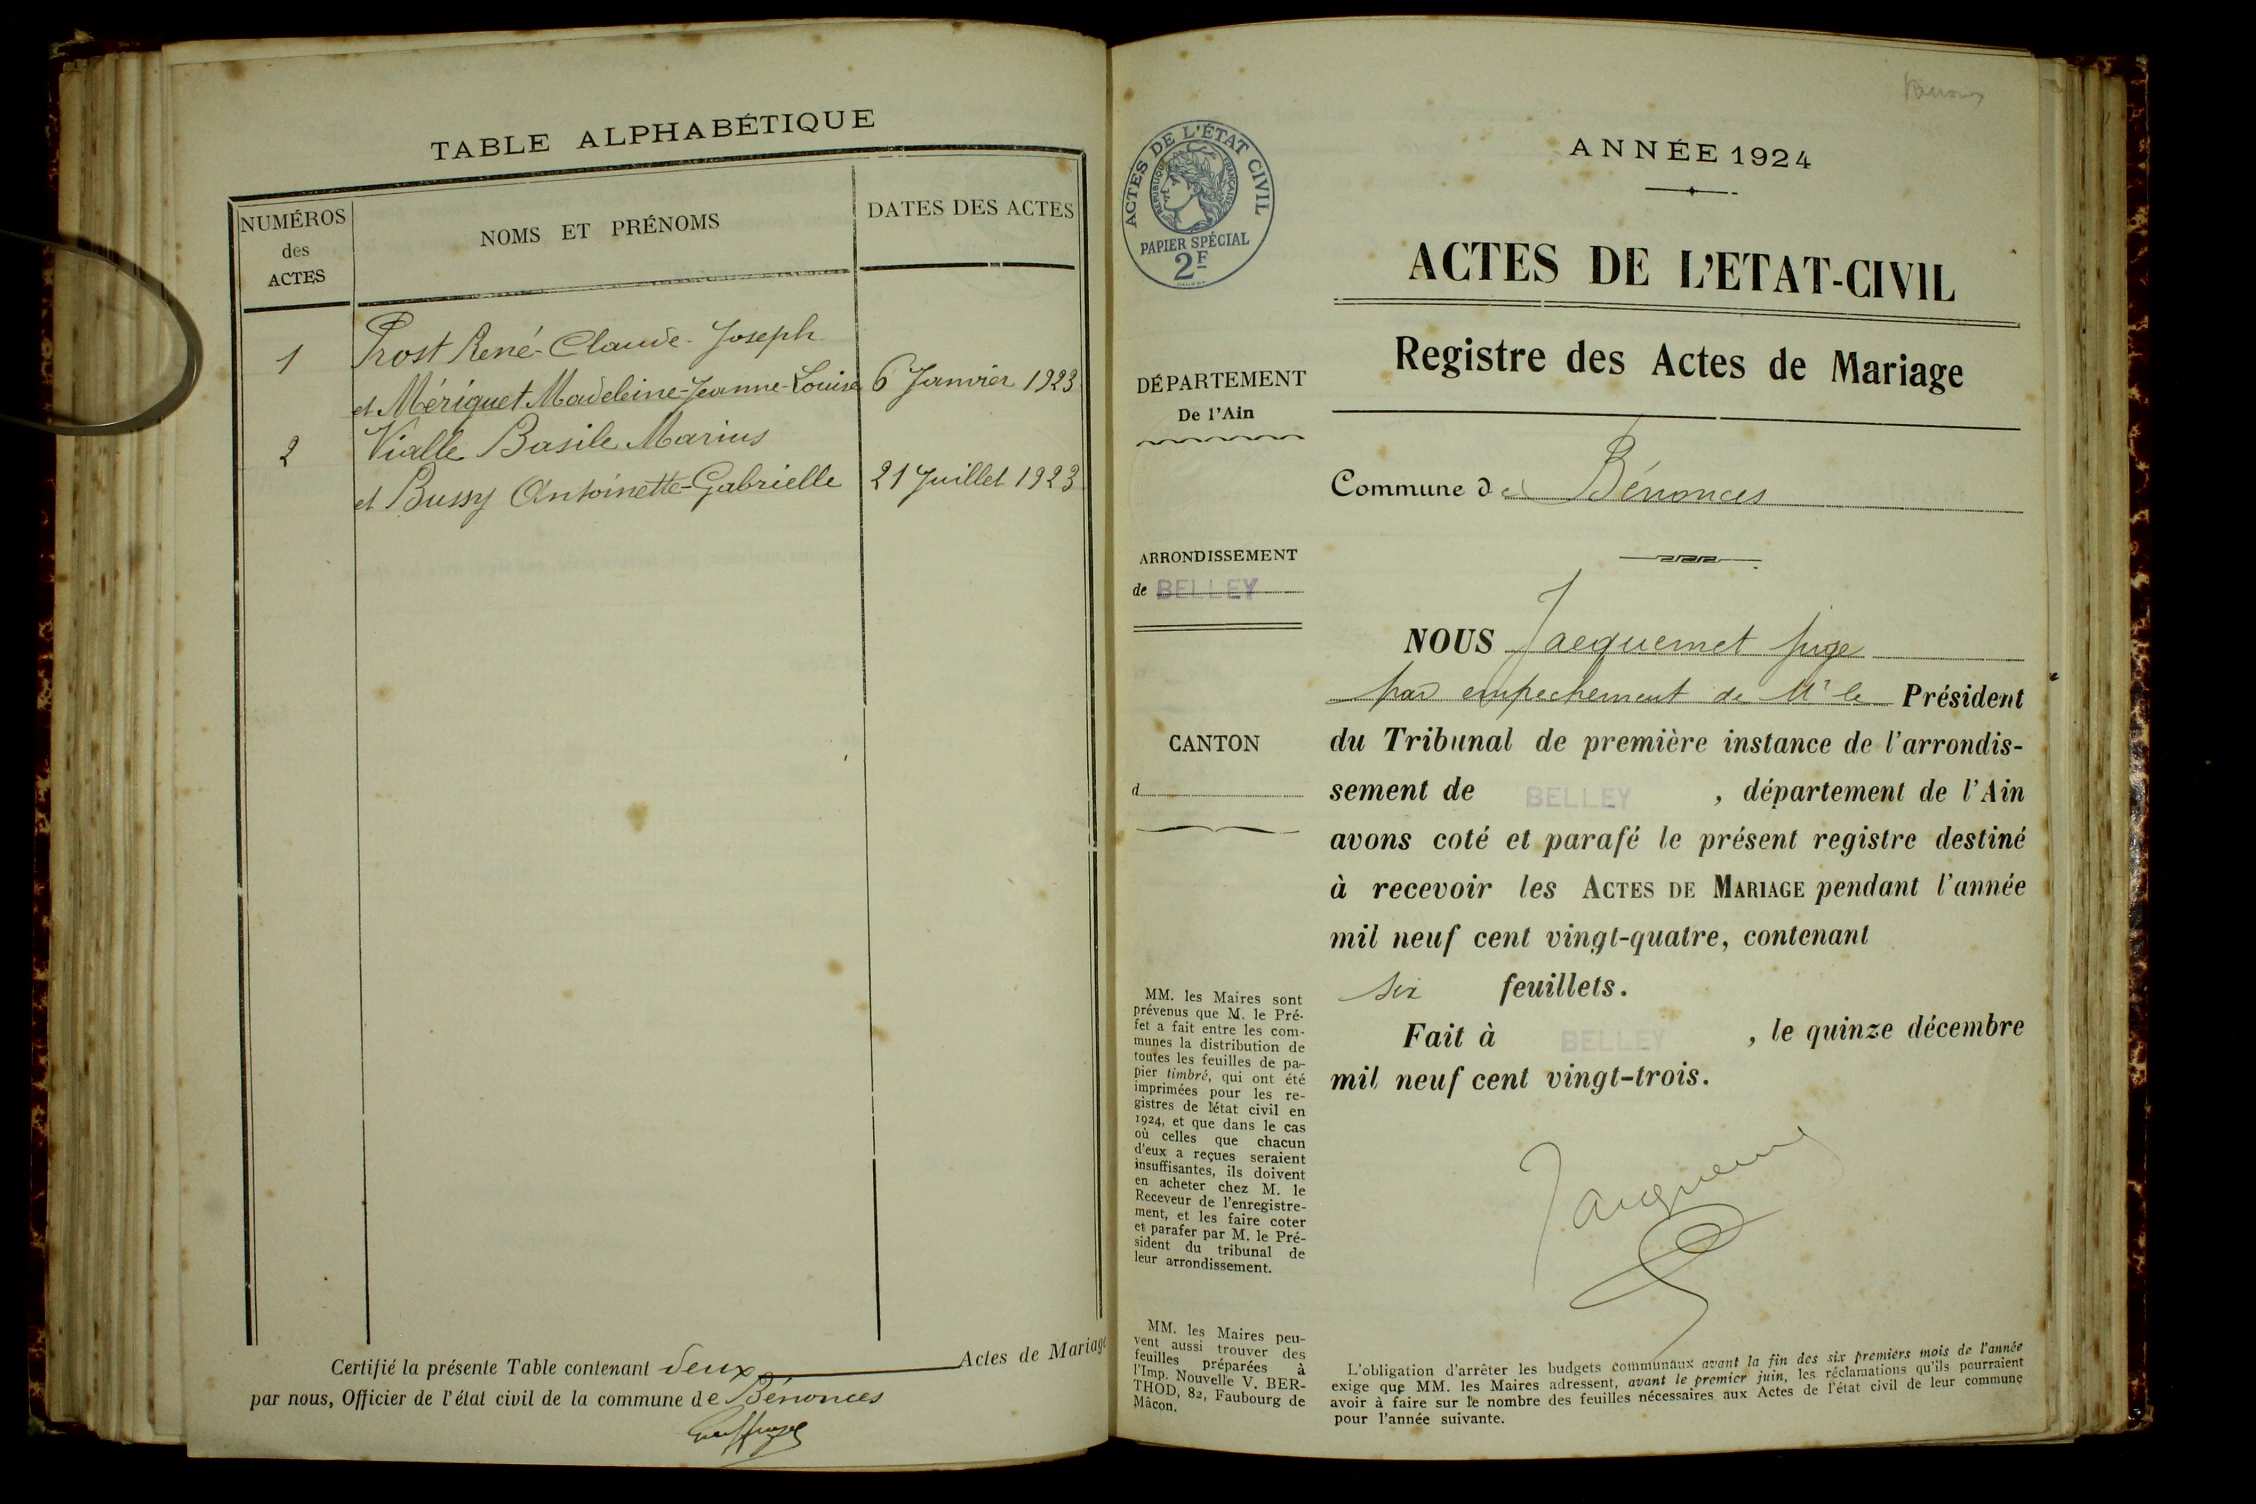 TABLE ALPHABÉTIQUE
NUMÉROS
des
ACTES
NOMS ET PRÉNOMS
DATES DES ACTES
1
Prost René-Claude-Joseph
et Mériguet Madeleine-Jeanne-Louise
6 Janvier 1923
2
Vialle Basile Marius
et Bussy Antoinette-Gabrielle
21 Juillet 1923
Certifié la présente Table contenant deux Actes de Mariage
par nous, Officier de l'état civil de la commune de Bénonces
ACTES DE L'ÉTAT CIVIL
RÉPUBLIQUE FRANÇAISE
PAPIER SPÉCIAL
2F
DÉPARTEMENT
De l'Ain
ARRONDISSEMENT
de BELLEY
CANTON
d
MM. les Maires sont
prévenus que M. le Pré-
fet a fait entre les com-
munes la distribution de
toutes les feuilles de pa-
pier timbré, qui ont été
imprimées pour les re-
gistres de l'état civil en
1924, et que dans le cas
où celles que chacun
d'eux a reçues seraient
insuffisantes, ils doivent
en acheter chez M. le
Receveur de l'enregistre-
ment, et les faire coter
et parafer par M. le Pré-
sident du tribunal de
leur arrondissement.
MM. les Maires peu-
vent aussi trouver des
feuilles préparées à
l'Imp. Nouvelle V. BER-
THOD, 82, Faubourg de
Mâcon.
ANNÉE 1924
ACTES DE L'ETAT-CIVIL
Registre des Actes de Mariage
Commune de Bénonces
NOUS Jacquemet juge
par empechement de Mr le Président
du Tribunal de première instance de l'arrondis-
sement de BELLEY, département de l'Ain
avons coté et parafé le présent registre destiné
à recevoir les ACTES DE MARIAGE pendant l'année
mil neuf cent vingt-quatre, contenant
six feuillets.
Fait à BELLEY, le quinze décembre
mil neuf cent vingt-trois.
L'obligation d'arrêter les budgets communaux avant la fin des six premiers mois de l'année
exige que MM. les Maires adressent, avant le premier juin, les réclamations qu'ils pourraient
avoir à faire sur le nombre des feuilles nécessaires aux Actes de l'état civil de leur commune
pour l'année suivante.